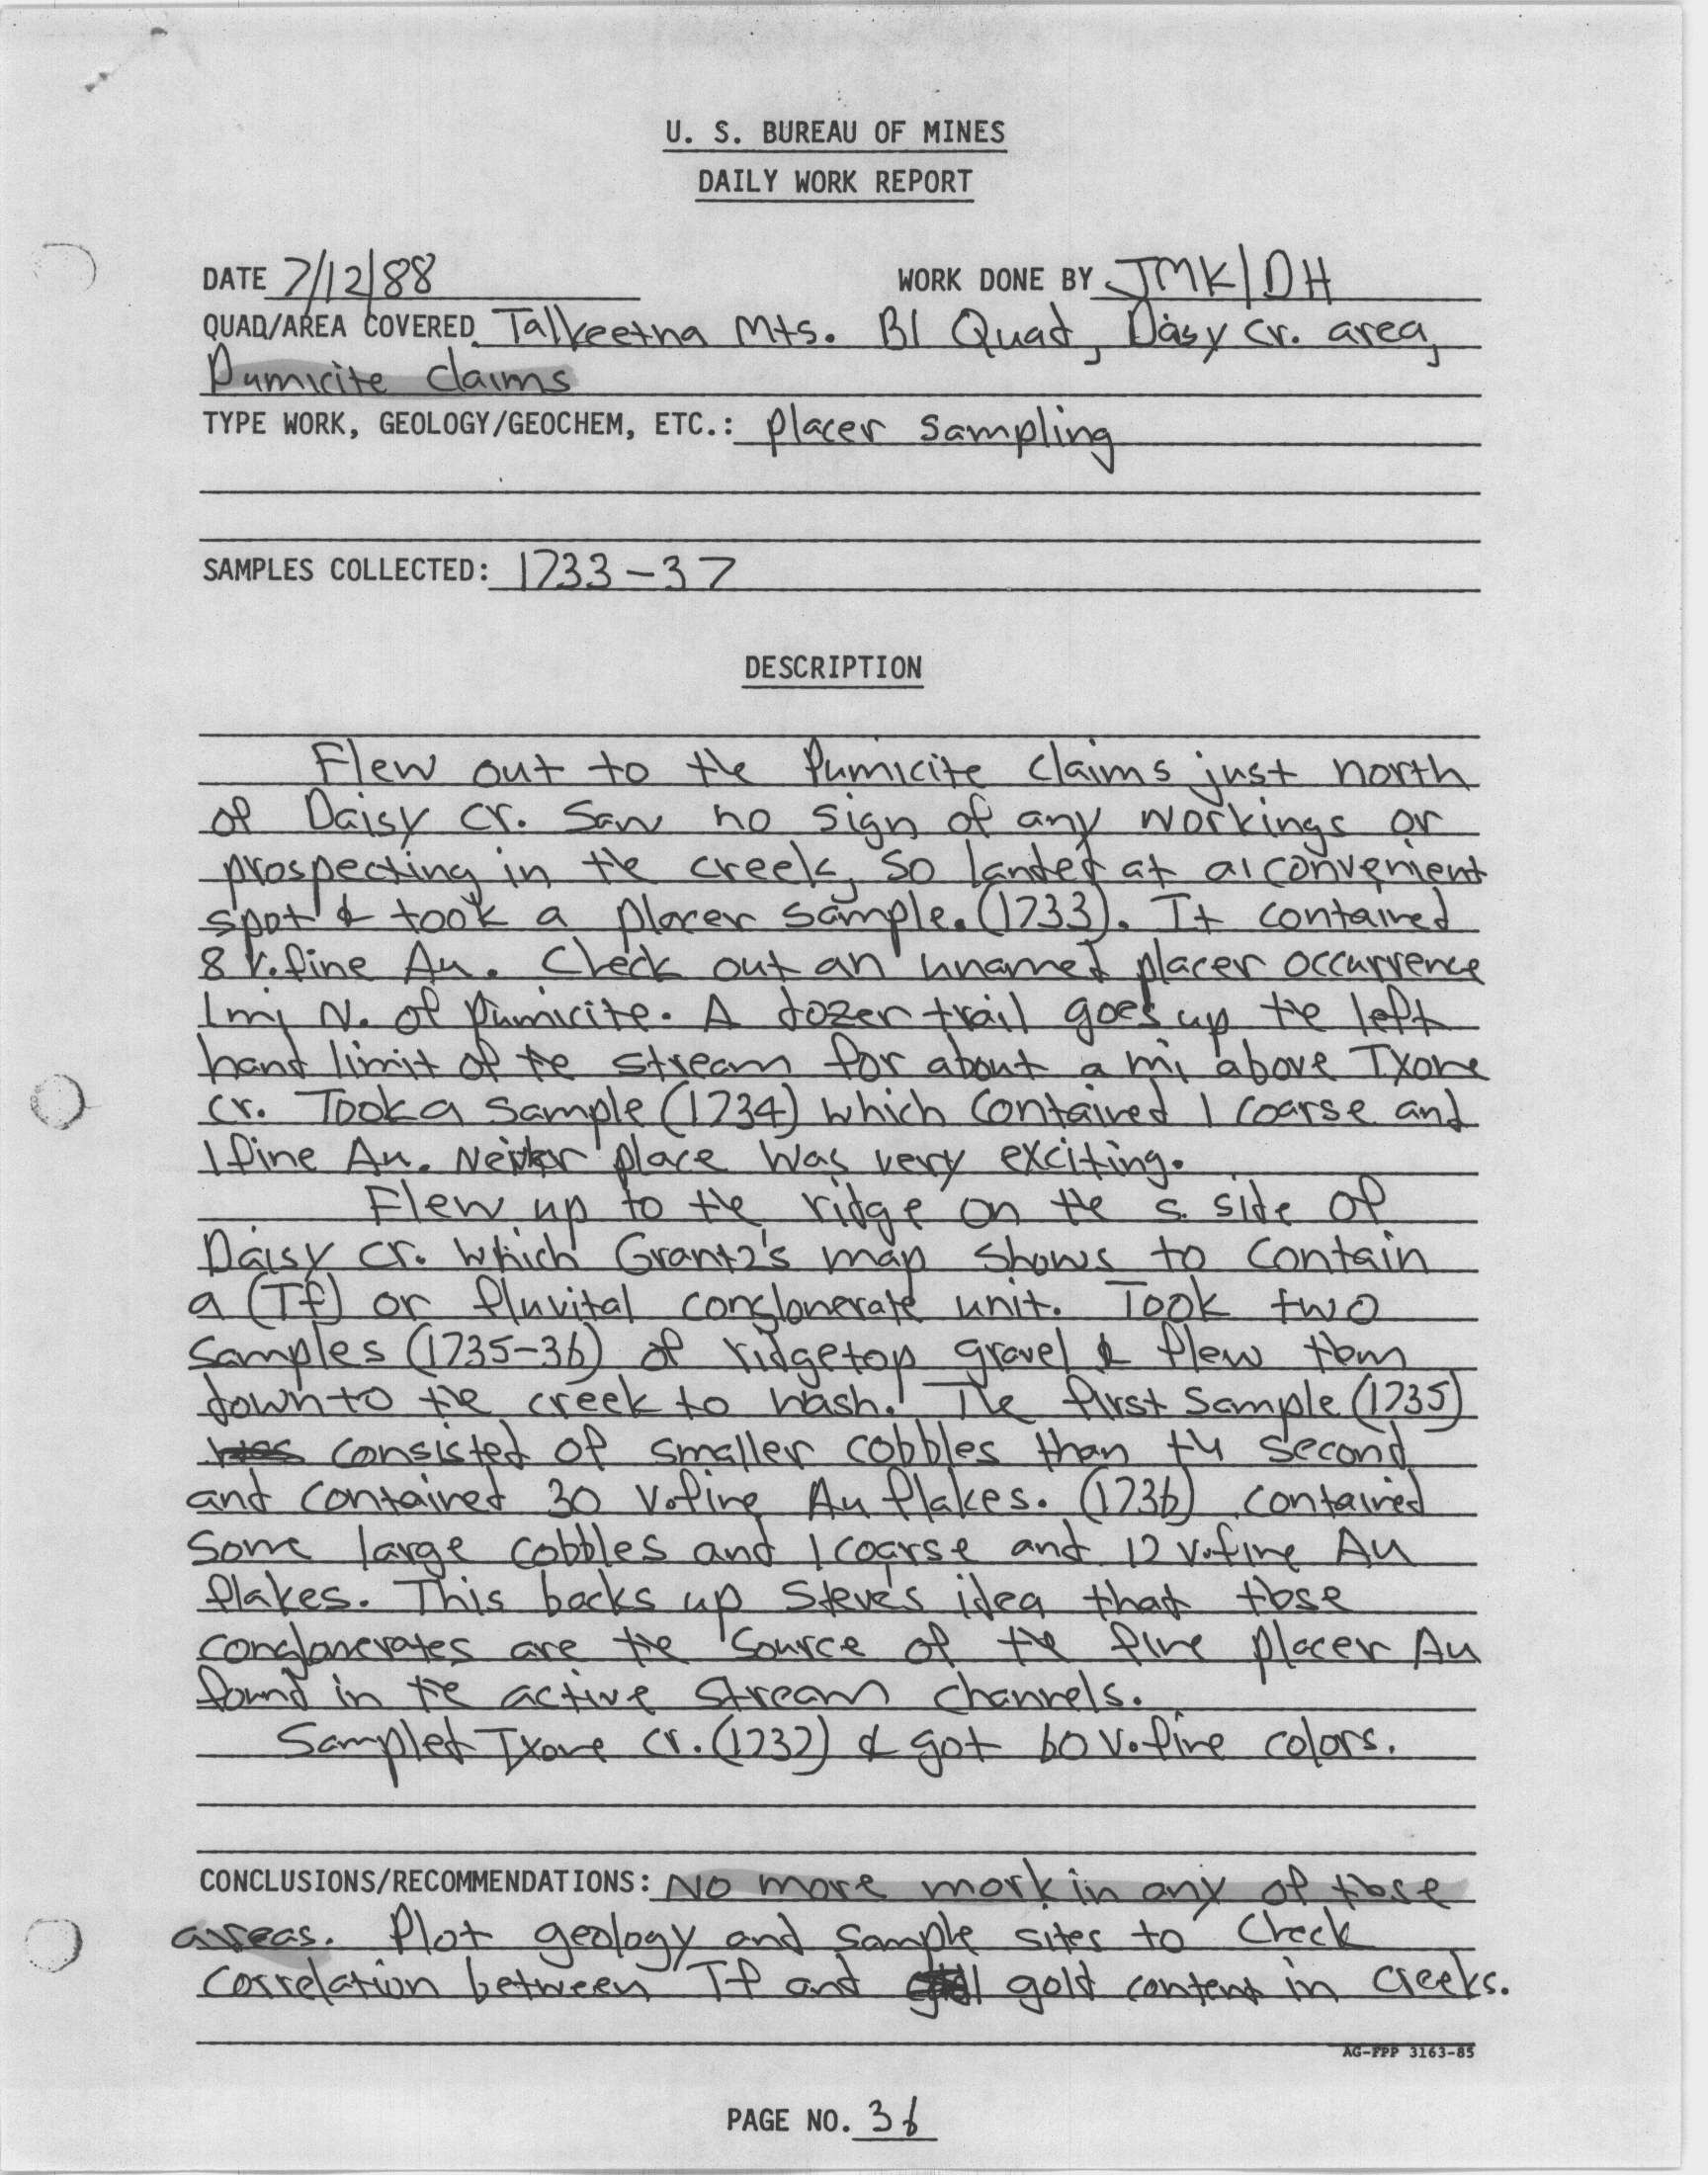 U. S. BUREAU OF MINES
DAILY WORK REPORT
DATE 7/12/88 WORK DONE BY JMK/DH
QUAD/AREA COVERED Talkeetna Mts. B1 Quad, Daisy Cr. area,
Pumicite Claims
TYPE WORK, GEOLOGY/GEOCHEM, ETC.: placer sampling
SAMPLES COLLECTED: 1733-37
DESCRIPTION
Flew out to the Pumicite claims just north
of Daisy Cr. Saw no sign of any workings or
prospecting in the creek, so landed at a convenient
spot & took a placer sample. (1733). It contained
8 v.fine Au. Check out an unamed placer occurrence
1mi N. of Pumicite. A dozer trail goes up the left
hand limit of the stream for about a mi above
Cr. Took a sample (1734) which contained 1 coarse and
1 fine Au. Neither place was very exciting.
Flew up to the ridge on the s. side of
Daisy Cr. which Grantz's map shows to contain
a (Tf) or fluvital conglomerate unit. Took two
samples (1735-36) of ridgetop gravel & flew them
down to the creek to wash. The first sample (1735)
was consisted of smaller cobbles than the second
and contained 30 v.fine Au flakes. (1736) contained
some large cobbles and 1 coarse and 12 v.fine Au
flakes. This backs up Steve's idea that these
conglomerates are the source of the fine placer Au
found in the active stream channels.
Sampled Cr. (1737) & got 60 v.fine colors.
CONCLUSIONS/RECOMMENDATIONS: No more work in any of these
areas. Plot geology and sample sites to check
correlation between Tf and gold content in creeks.
AG-FPP 3163-85
PAGE NO. 36